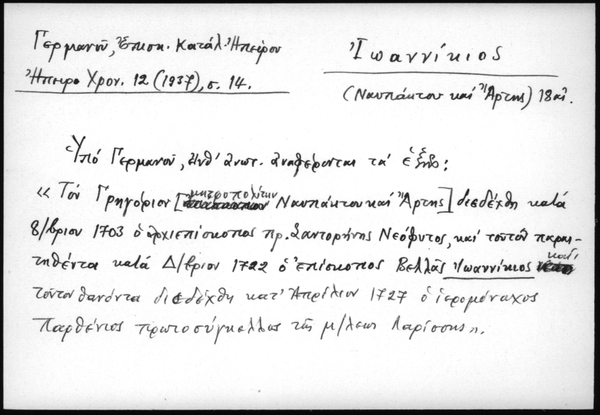 Γερμανοῦ, Ἐπισκ. Κατάλ. Ἠπείρου
Ἠπειρ. Χρον. 12 (1937), σ. 14.
Ἰωαννίκιος
(Ναυπάκτου καὶ Ἄρτης) 18 αἰ.
Ὑπό Γερμανοῦ, ἀναφέρονται τὰ ἑξῆς:
« Τὸν Γρηγόριον [μητροπολίτην Ναυπάκτου καὶ Ἄρτης] διεδέχθη κατά
8/βριον 1703 ὁ ἀρχιεπίσκοπος πρ. Σαντορήνης Νεόφυτος, καὶ τοῦτον παραι-
τηθέντα κατά Δ/βριον 1722 ὁ ἐπίσκοπος Βελλᾶς Ἰωαννίκιος καὶ
τοῦτον θανόντα διεδέχθη κατ' Ἀπρίλιον 1727 ὁ ἱερομόναχος
Παρθένιος πρωτοσύγκελλος τῆς μ/λεως Λαρίσσης ».